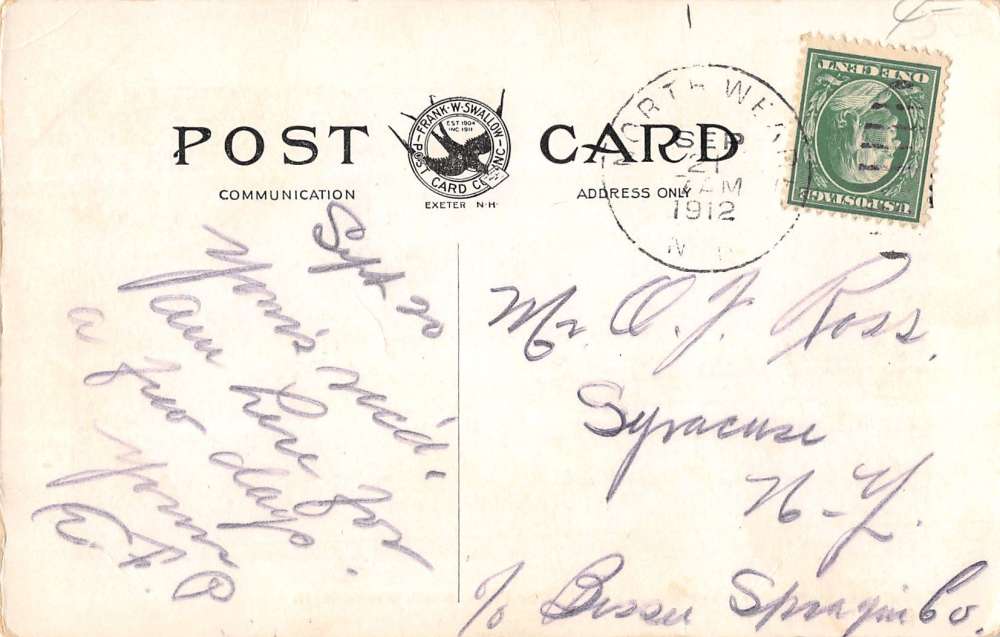 POST CARD
FRANK·W·SWALLOW
EST 1904
INC 1911
POST CARD CO. INC
EXETER N·H·
COMMUNICATION
ADDRESS ONLY
NORTH WEARE
SEP
21
7 AM
1912
N H
U.S. POSTAGE
ONE CENT
Sept 20
Yours rec'd.
am here for
a few days.
Yours
Mr O. J. Ross,
Syracuse
N-Y.
c/o Sprague Co.